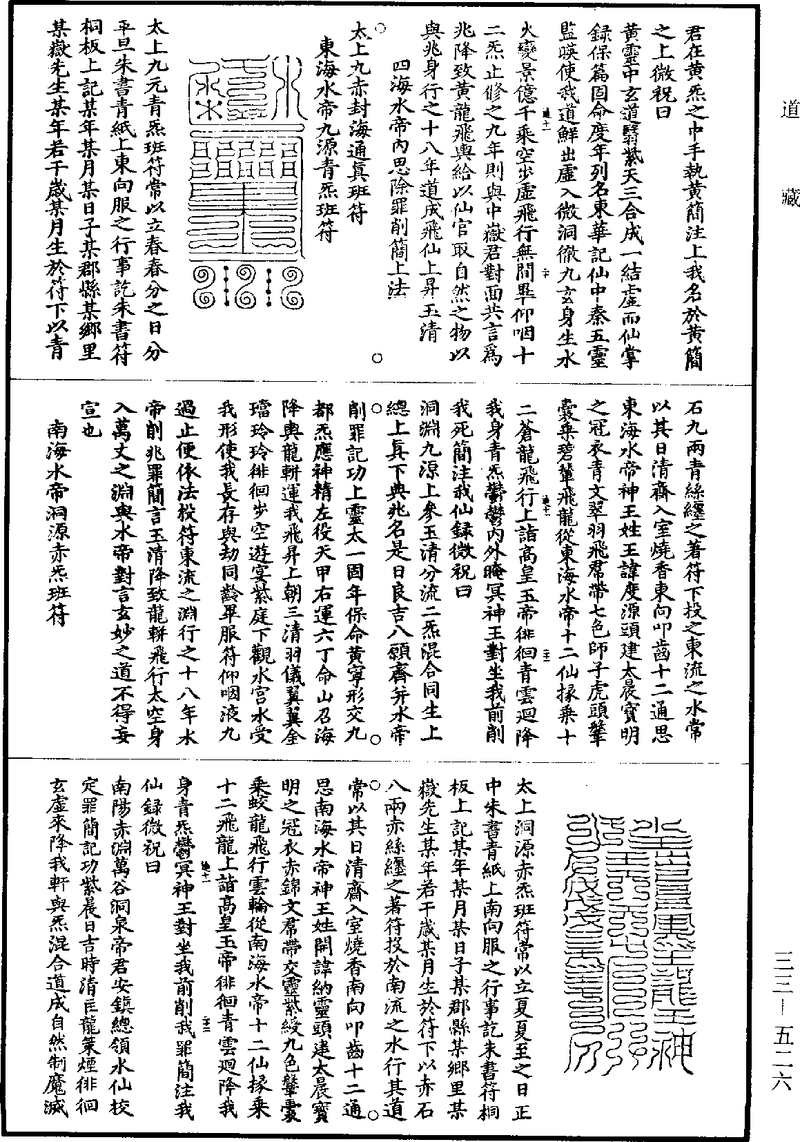 道藏
君在黃炁之中手執黃簡注上我名於黃簡
之上微祝曰
黃靈中玄道翳紫天三合成一結虛而仙掌
録保篇固命度年列名東華記仙中秦五靈
監暎使我道鮮出虛入微洞徹九玄身生水
火變景億千乘空步虛飛行無間畢仰咽十
二炁止修之九年則與中嶽君對面共言為
兆降致黃龍飛輿給以仙官取自然之物以
與兆身行之十八年道成飛仙上昇玉清
四海水帝內思除罪削簡上法
太上九赤封海通真班符
東海水帝九源青炁班符
太上九元青炁班符常以立春春分之日分
平旦朱書青紙上東向服之行事訖朱書符
桐板上記某年某月某日子某郡縣某鄉里
某嶽先生某年若干歲某月生於符下以青
石九兩青絲纏之著符下投之東流之水常
以其日清齋入室燒香東向叩齒十二通思
東海水帝神王姓王諱度源頭建太晨寶明
之冠衣青文翠羽飛帬帶七色師子虎頭鞶
囊乘碧輦飛龍從東海水帝十二仙掾乘十
二蒼龍飛行上詣高皇玉帝徘徊青雲迴降
我身青炁鬱鬱內外晻冥神王對坐我前削
我死簡注我仙録微祝曰
洞淵九源上參玉清分流二炁混合同生上
總上真下典兆名是日良吉八願齋并水帝
削罪記功上靈太一固年保命黃寧形交九
都炁應神精左役天甲右運六丁命山召海
降輿龍軿運我飛昇上朝三清羽儀翼翼金
璫玲玲徘徊步空遊宴紫庭下觀水宮水受
我形使我長存與劫同齡畢服符仰咽液九
過止便依法投符東流之淵行之十八年水
帝削兆罪簡言玉清降致龍軿飛行太空身
入萬丈之淵與水帝對言玄妙之道不得妄
宣也
南海水帝洞源赤炁班符
太上洞源赤炁班符常以立夏夏至之日正
中朱書青紙上南向服之行事訖朱書符桐
板上記某年某月某日子某郡縣某鄉里某
嶽先生某年若干歲某月生於符下以赤石
八兩赤絲纏之著符投於南流之水行其道
常以其日清齋入室燒香南向叩齒十二通
思南海水帝神王姓開諱納靈頭建太晨寶
明之冠衣赤錦文帬帶交靈紫綬九色鞶囊
乘蛟龍飛行雲輪從南海水帝十二仙掾乘
十二飛龍上詣高皇玉帝徘徊青雲迴降我
身青炁鬱冥神王對坐我前削我罪簡注我
仙録微祝曰
南陽赤淵萬谷洞泉帝君安鎮總領水仙校
定罪簡記功紫晨日吉時清臣龍策煙徘徊
玄虛來降我軒與炁混合道成自然制魔滅
三三—五二六